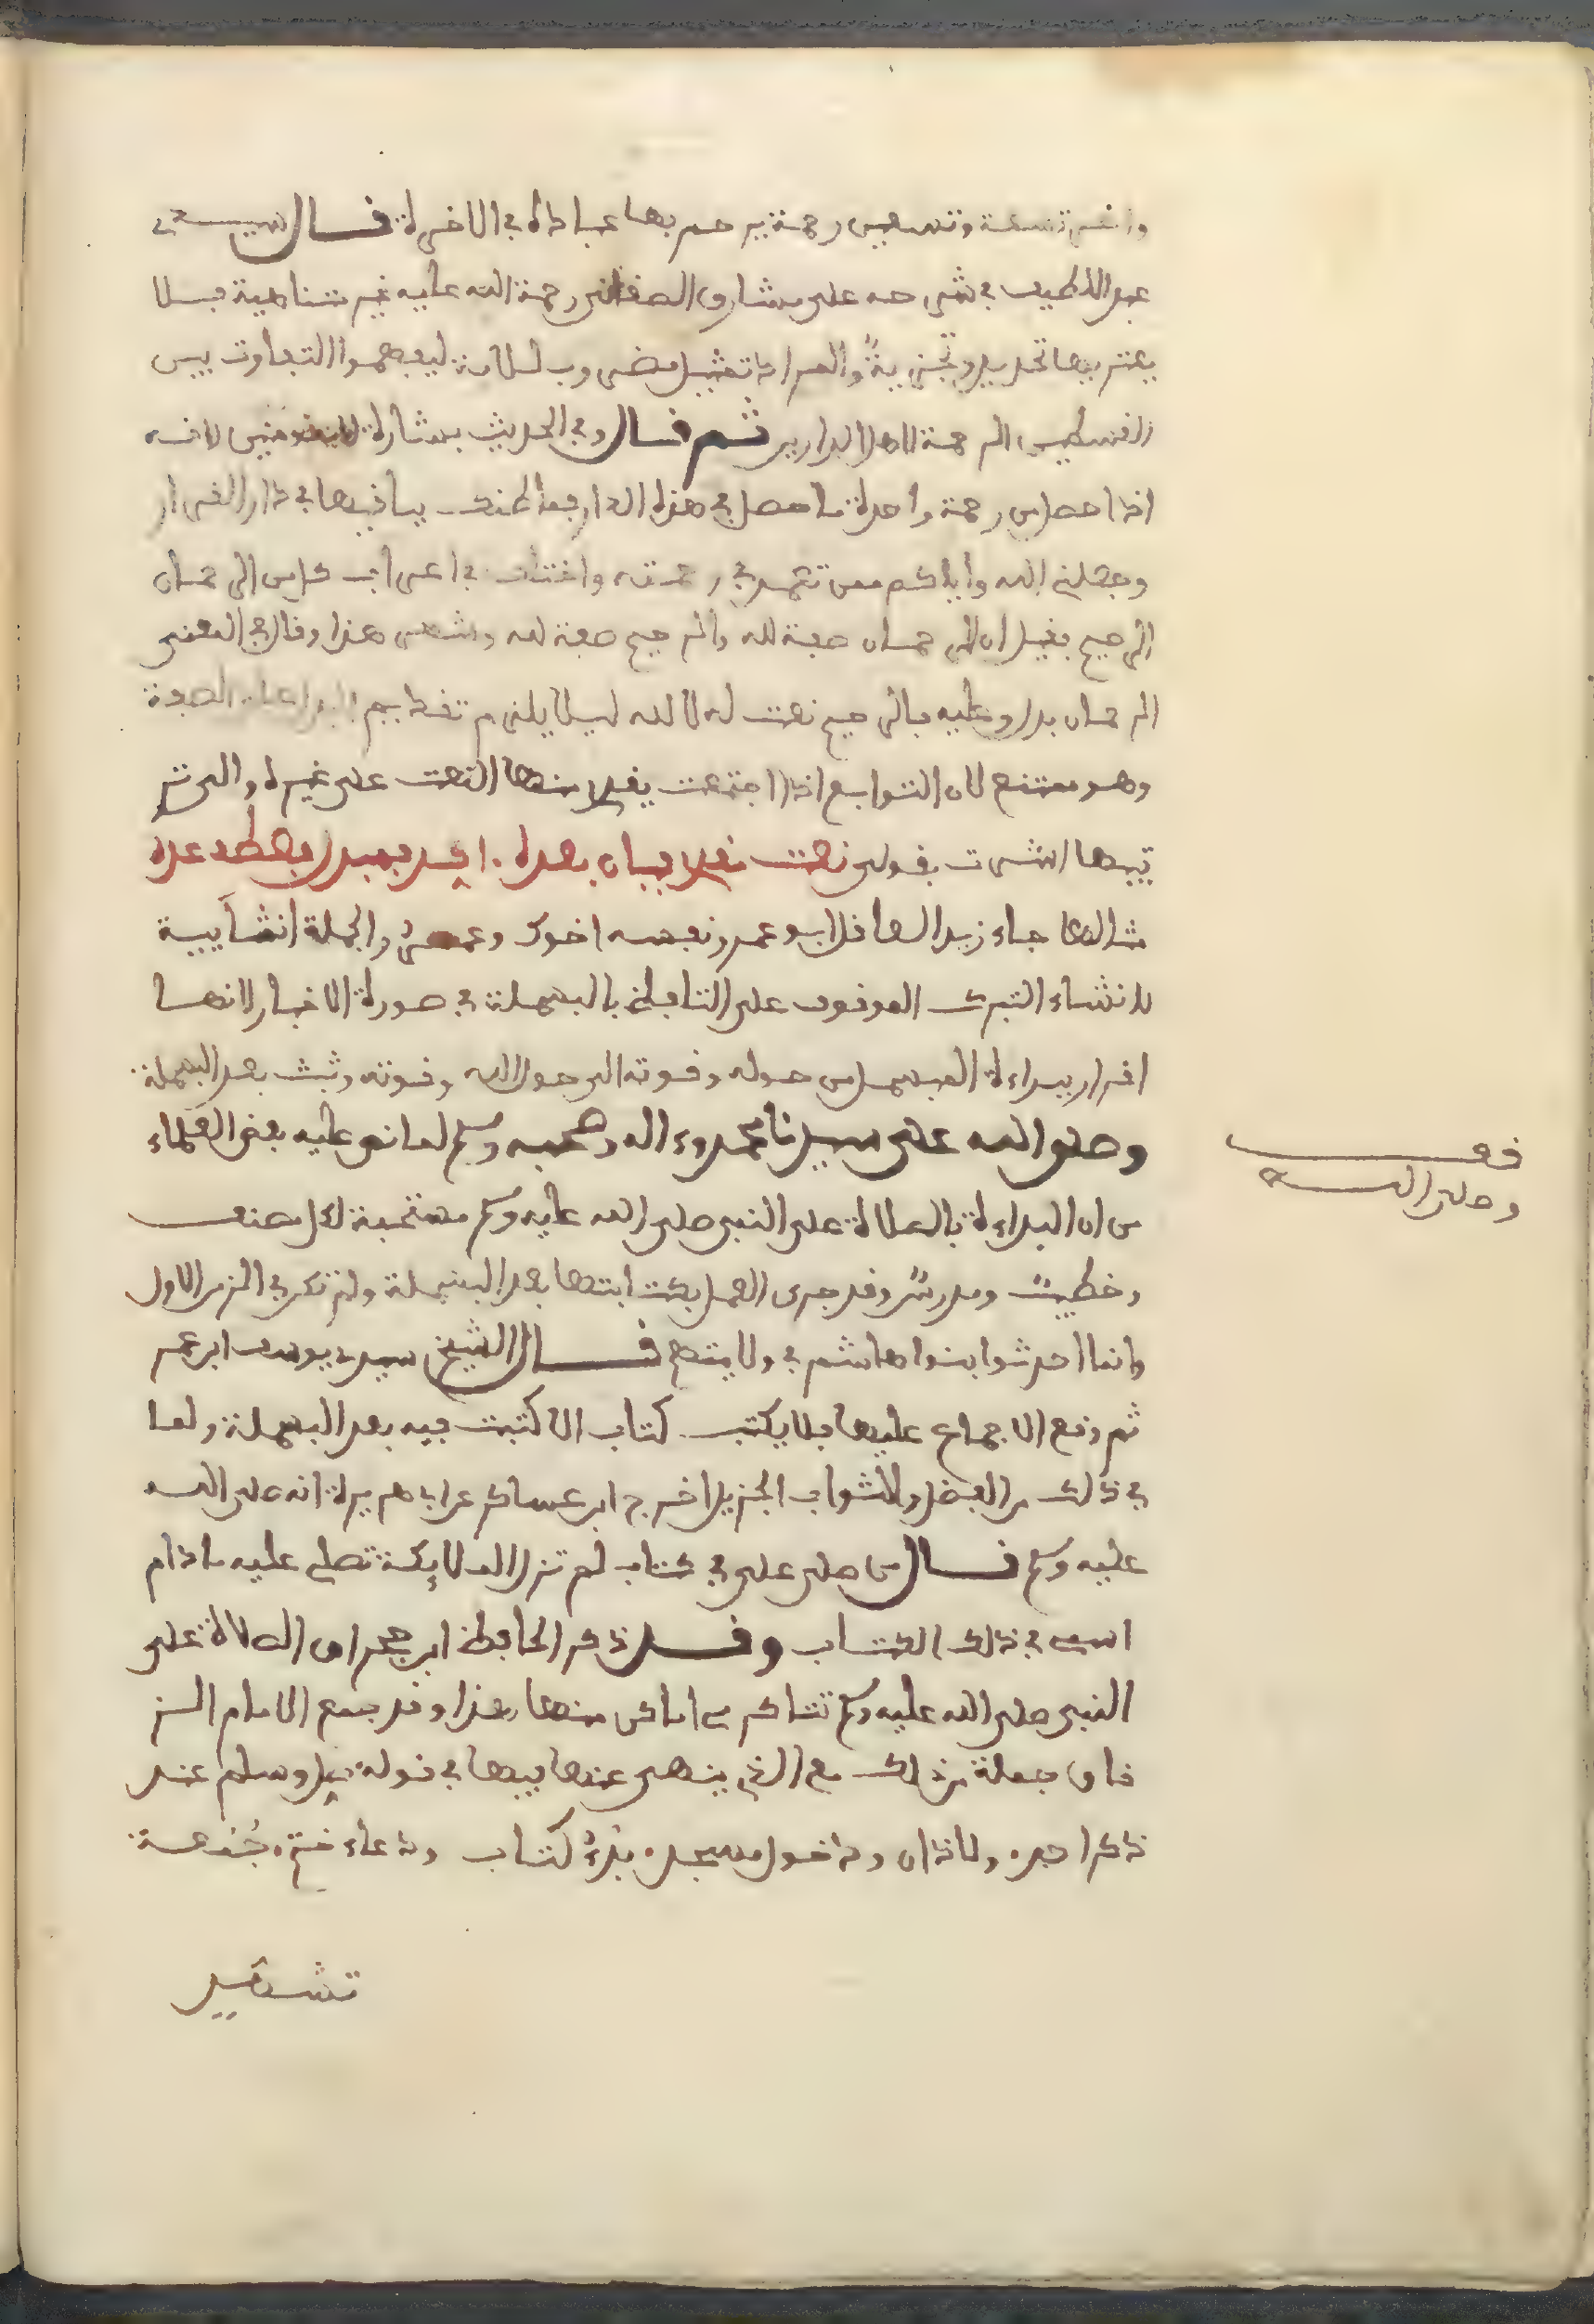 واخر تسعة وتسعين رحمة يرحم بها عباده في الاخرة قال سيدي
عبد اللطيف في شرحه على مشارق الصغاني رحمة الله عليه غير متناهية فلا
يعتريها تحديد وتجزية والمراد تمثيل مضروب للامة ليفهموا التفاوت بين
القسطين الرحمة لاهل الدارين ثم قال وفي الحديث بشارة للمؤمنين لانه
اذا حصل من رحمة واحدة ما حصل في هذه الدار فما ظنك بباقيها في دار القرار
وجعلني الله واياكم ممن تغمد في رحمته واختلف في اعراب كل من الرحمان
الرحيم فقيل ان الرحمان صفة لله والرحيم صفة لله وشهر هذا وقال في المغني
الرحمان بدل وعليه فالرحيم نعت له لا لله ليلا يلزم تقديم البدل على الصفة
وهو ممتنع لان التوابع اذا اجتمعت يقدم منها النعت على غيره والى تر
تيبها اشرت بقولي نعت مقدم بيان بعده اكد بمبدل بعطف عده
مثالها جاء زيد العاقل ابو عمر نفسه اخوك وعمرو والجملة انشايية
لانشاء التبرك الموقوف على التلفظ بالبسملة في صورة الاخبار لانها
اقرار ببراءة المبسمل من حوله وقوته الى حول الله وقوته وثبت بعد البسملة
وصلى الله على سيدنا محمد وءاله وصحبه وسلم لما نص عليه بعض العلماء
من ان البداءة بالصلاة على النبي صلى الله عليه وسلم مستحبة لكل مصنف
وخطيب ومدرس وقد جرى العمل بكتابتها بعد البسملة ولم تكن في الزمن الاول
وانما احدثوا بنوا هاشم في ولايتهم قال الشيخ سيدي يوسف ابن عمر
ثم وقع الاجماع عليها فلا يكتب كتاب الا كتبت فيه بعد البسملة ولما
في ذلك من الفضل والثواب الجزيل اخرج ابن عساكر عن ابي هريرة انه صلى الله
عليه وسلم قال من صلى علي في كتاب لم تزل الملايكة تصلي عليه ما دام
اسمي في ذلك الكتاب وقد ذكر الحافظ ابن حجر ان الصلاة على
النبي صلى الله عليه وسلم تتاكد في اماكن منها هذا وقد جمع الامام الز
قاق جملة من ذلك مع الذي ينهى عنها فيها في قوله صل وسلم عند
ذكر احمد ولاذان ودخول مسجد بدء كتاب ودعاء ختم جمعة
تشهد
قف
وصلى الله